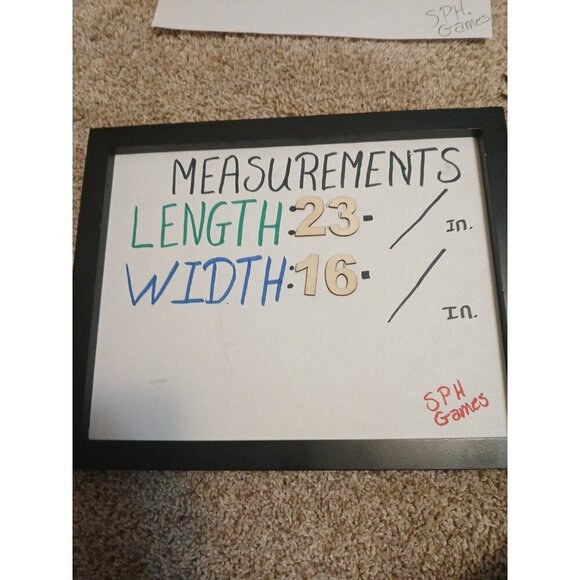 SPH.
Games
MEASUREMENTS
LENGTH:23- / In.
WIDTH:16- / In.
SPH
Games